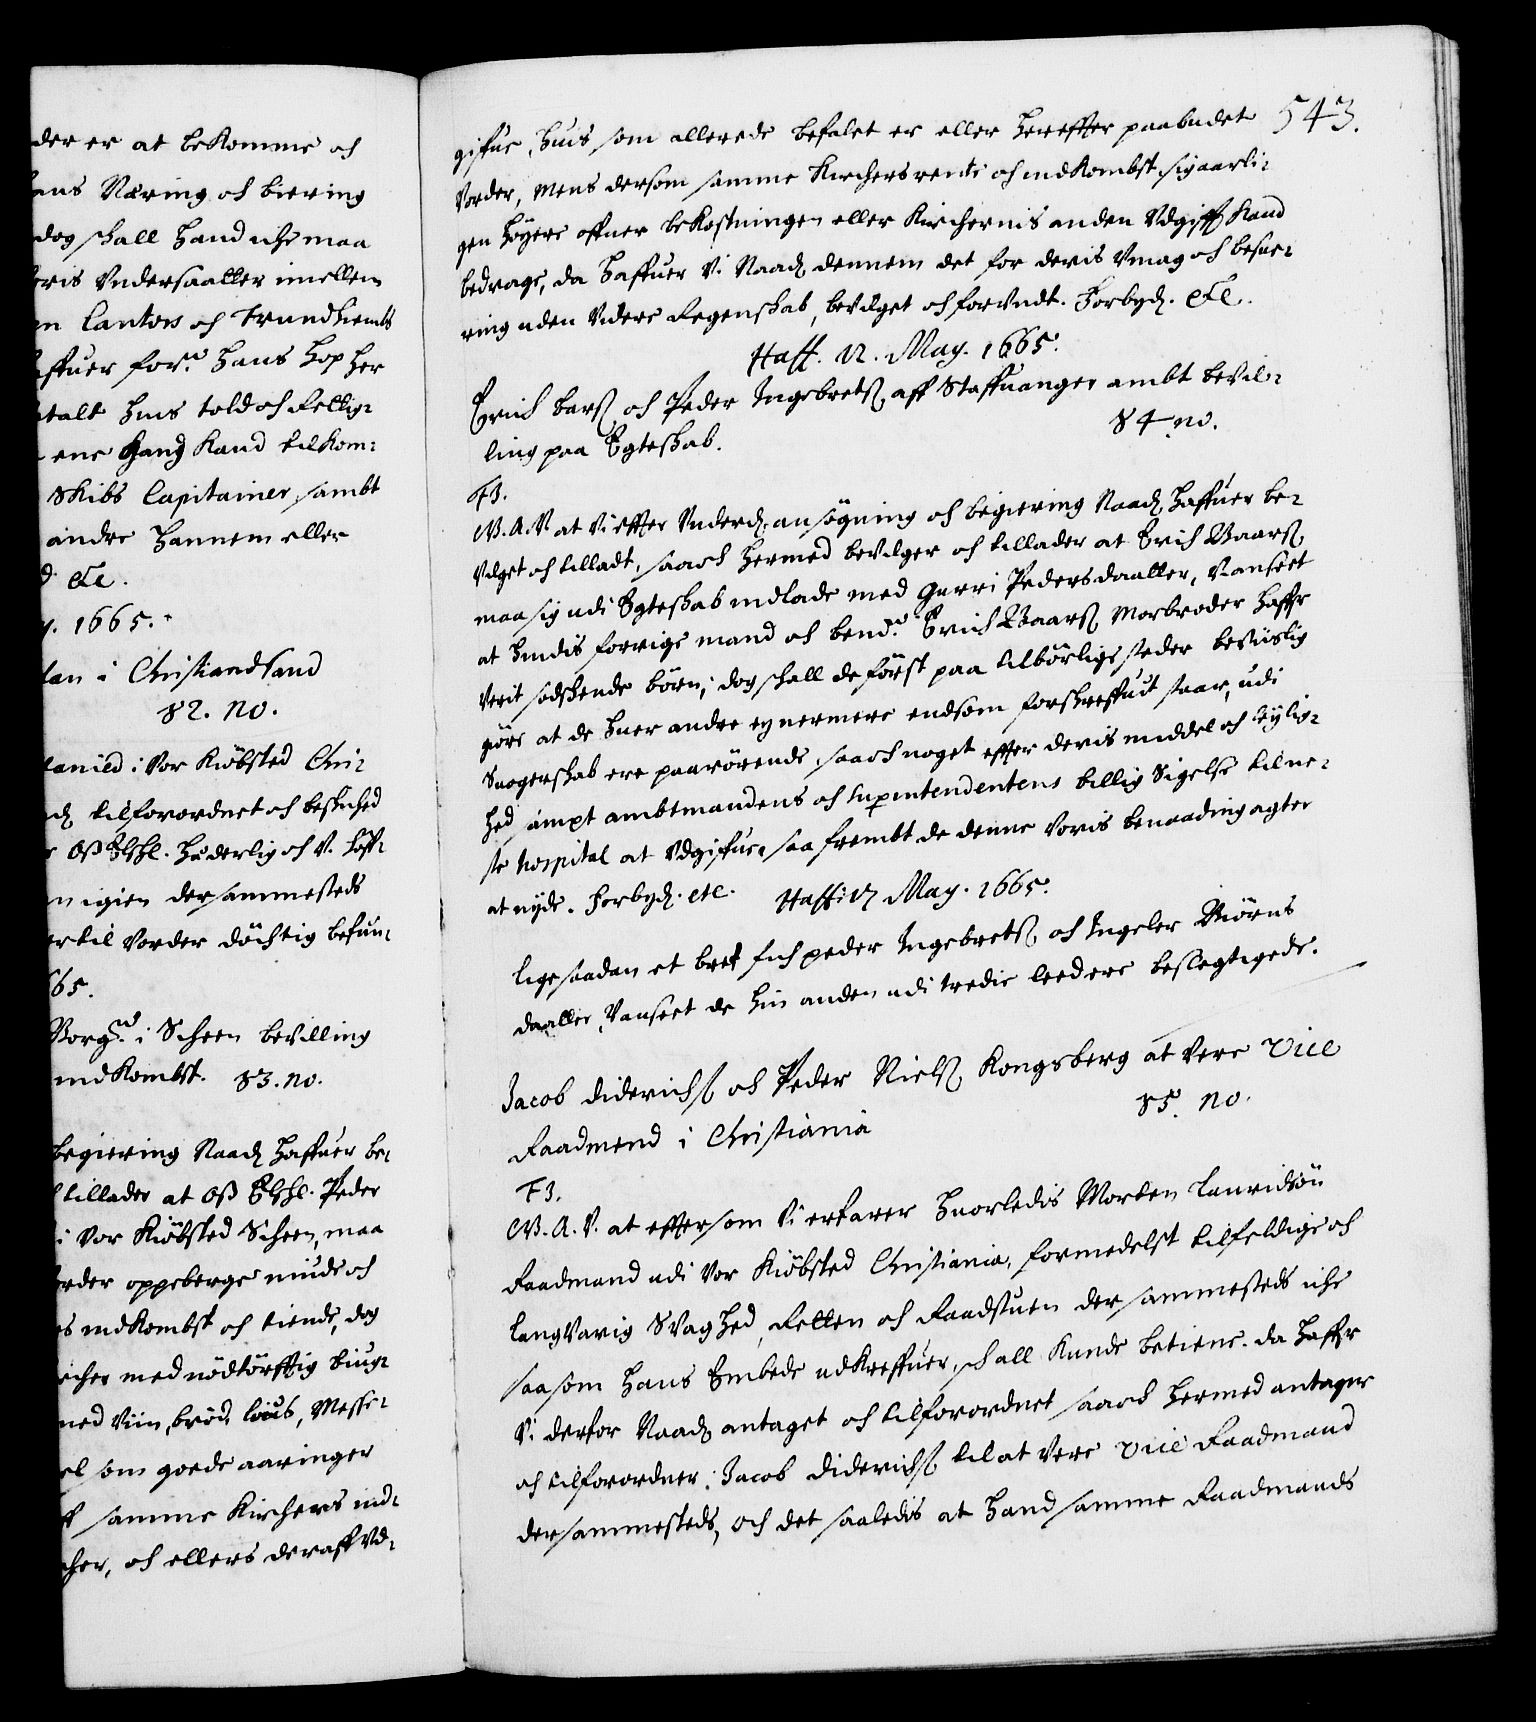 der er at bekomme och
hans Næring och biering
dog schall hand iche maa
voris Undersaatter imellem
en Cantors och Trundhiembs
affuer for.ne hans Hop her
talt huis told och Rettig-
ene Gang kand tilkom-
Skibs Capitainer, sambt
andre hannem eller
d. etc.
y. 1665.
lan i Christiandsand
82. no.
lanied i vor Kiøbsted Chri-
tilforordnet och beskiched
r Oß Elschl. Hæderlig och V. Loff-
n igien dersammesteds
ertil vorder döchtig befun-
65.
Borg.md i Scheen bevilling
indkombst. 83. no.
begiering Naad. haffuer be-
tillader at Oß Elschl. Peder
i vor Kiöbsted Scheen, maa
order oppeberge nÿde och
s indkombst och tiende, dog
icher med nödtörfftig biug-
med Viin, bröd, Liuus, Messe-
el som goede aaringer
ff samme Kirchers ind-
cher, och ellers deraff vd-
543.
gifue, huis som allerede befalet er eller hereffter paabudet
vorder, Mens dersom samme Kirchers rente och indkombst sig aarli-
gen höyere offuer bekostningen eller Kirchernis anden Udgifft kand
bedrage, da haffuer Vi Naad. dennem det for deris Umag och besue-
ring uden videre Regenschab, bevilget och forundt. Forbyd. etc.
Haff. 12. May. 1665.
Erich bars. och Peder Ingebrets. aff Staffuanger ambt bevil-
ling paa Egteschab.
84. no.
F3.
G. A. V. at vi effter Underd. ansögning och begiering Naad. haffuer be-
vilget och tilladt, saa och hermed bevilger och tillader at Erich Baars.
maa sig udi Egteschab indlade med Gurri Pedersdaatter, Uanseet
at hendis forrige mand och bend.te Erich Baars. Morbroder haffr
verit södschende börn, dog schall de först paa tilbörlige steder bevislig
giöre at de huer andre ey nermere endsom forschreffuit staar, udi
Suogerschab ere paarörende, saa och noget effter deris middel och leylig-
hed, impt ambtmandens och Superintendentens billig Sigelse til ne-
ste hospital at Udgifue, saa frembt de denne voris benaading agter
at nyde. Forbyd. etc. Haff: 12 May. 1665.
lige saadan et bref fich peder Ingebrets. och Ingeler Biörns
daatter, Uanseet de hin anden udi tredie leed ere beslegtigede.
Jacob Diderichs. och Peder Niels. Kongsberg at vere Vice
Raadmend i Christiania
85. no.
F3.
G. A. V. at effter som vi erfarer huorledis Morten lauridsön
Raadmand udi vor Kiöbsted Christiania, formedelst tilfeldige och
langvarig Svaghed, Retten och Raadstuen der sammesteds iche
saa som hans Embede udkreffuer, schall kunde betiene. da haffr
vi derfor Naad. antaget och tilforordnet saa och hermed antager
och tilforordner, Jacob Diderichs. til at vere vice Raadmand
dersammesteds, och det saaledis at hand samme Raadmands